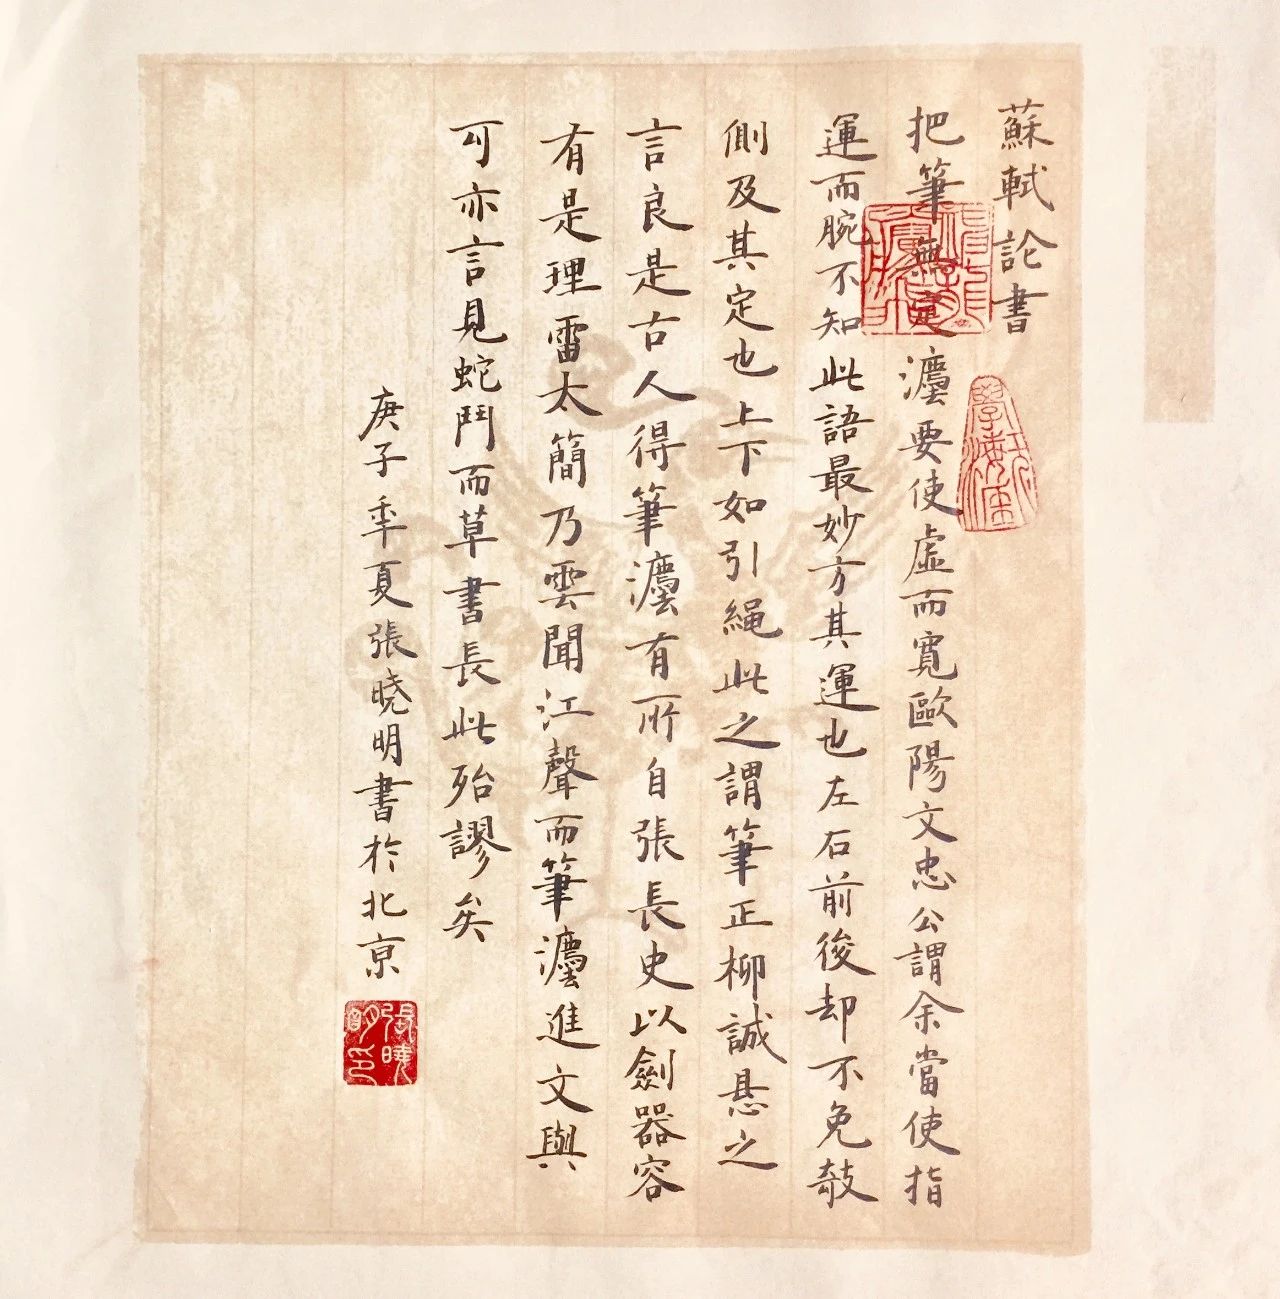 蘇軾論書
把筆無定灋要使虛而寬歐陽文忠公謂余當使指
運而腕不知此語最妙方其運也左右前後却不免敧
側及其定也上下如引繩此之謂筆正柳誠懸之
言良是古人得筆灋有所自張長史以劍器容
有是理雷太簡乃雲聞江聲而筆灋進文與
可亦言見蛇鬥而草書長此殆謬矣
庚子季夏張曉明書於北京
張曉明印